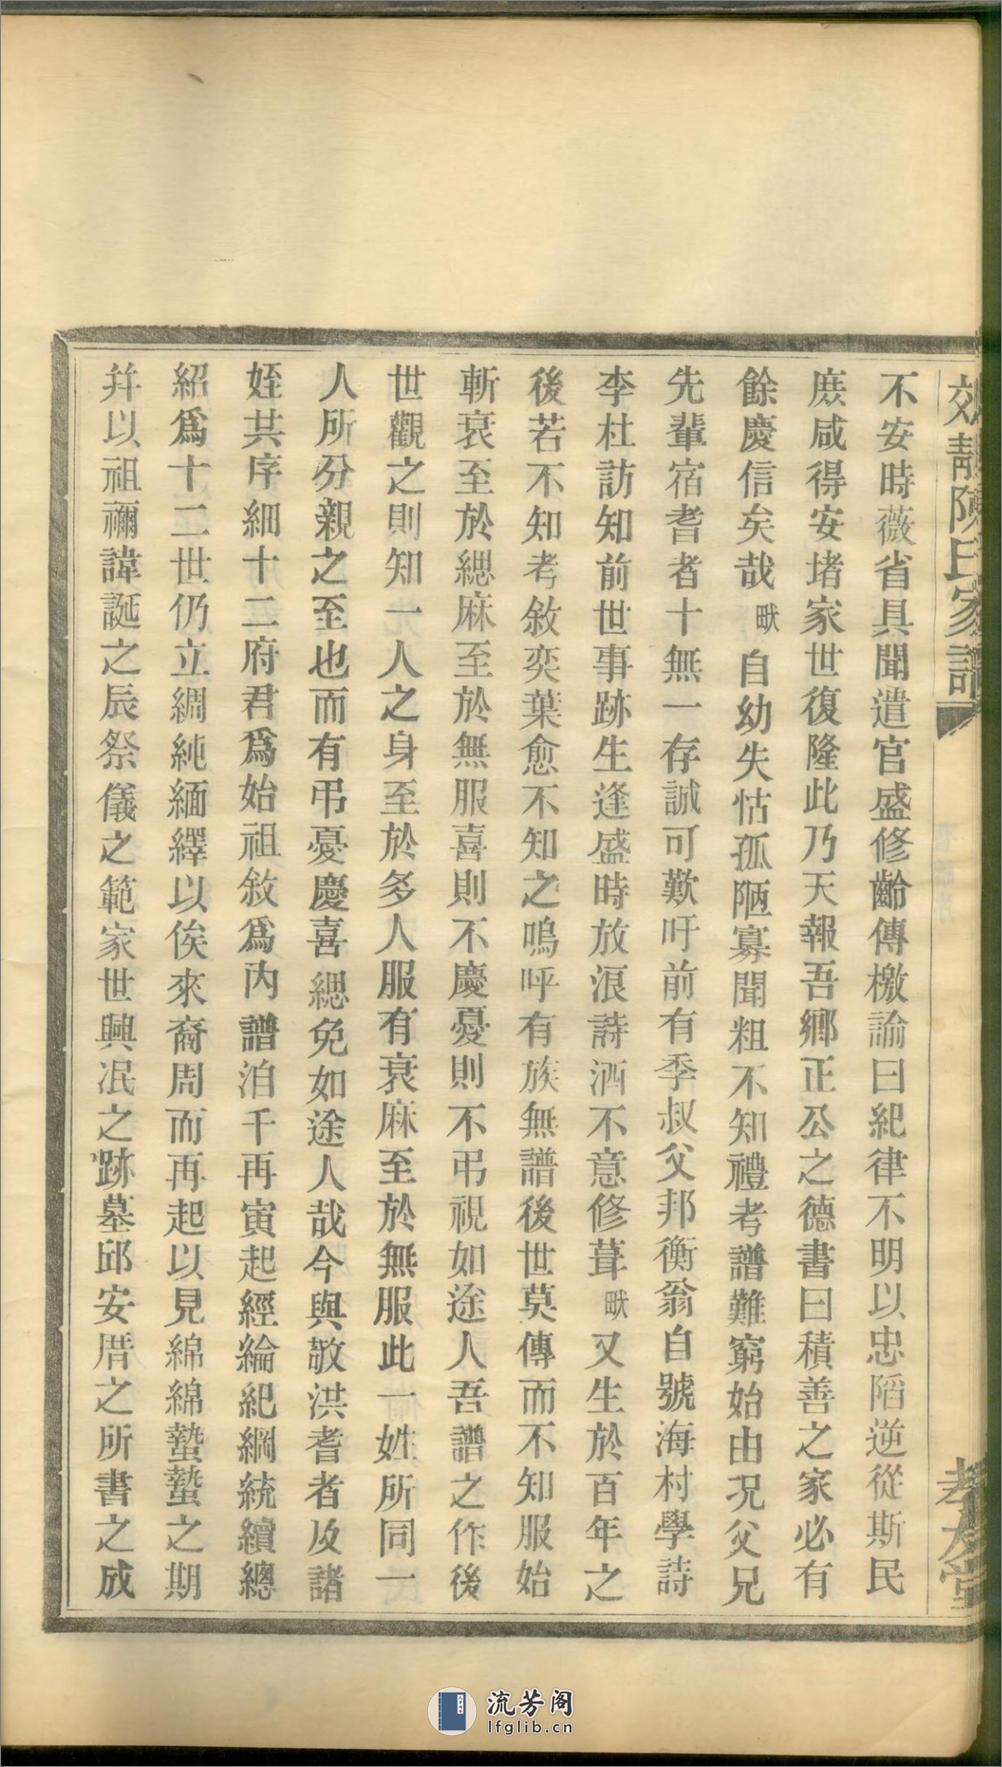 不安時薇省具聞遣官盛修齡傳檄諭曰紀律不明以忠陷逆從斯民
庶咸得安堵家世復隆此乃天報吾鄉正公之德書曰積善之家必有
餘慶信矣哉畎自幼失怙孤陋寡聞粗不知禮考譜難窮始由況父兄
先輩宿耆者十無一存誠可歎吁前有季叔父邦衡翁自號海村學詩
李杜訪知前世事跡生逢盛時放浪詩酒不意修葺畎又生於百年之
後若不知考敘奕葉愈不知之嗚呼有族無譜後世莫傳而不知服始
斬衰至於緦麻至於無服喜則不慶憂則不弔視如途人吾譜之作後
世觀之則知一人之身至於多人服有衰麻至於無服此一姓所同一
人所分親之至也而有弔憂慶喜緦免如途人哉今與敬洪耆者及諸
姪共序細十二府君爲始祖敘爲丙譜洎千再寅起經綸紀綱統續總
紹爲十二世仍立綢純緬繹以俟來裔周而再起以見綿綿蟄蟄之期
并以祖禰諱誕之辰祭儀之範家世興泯之跡墓邱安厝之所書之成
陳氏家譜
孝友堂
流芳阁
lfglib.cn